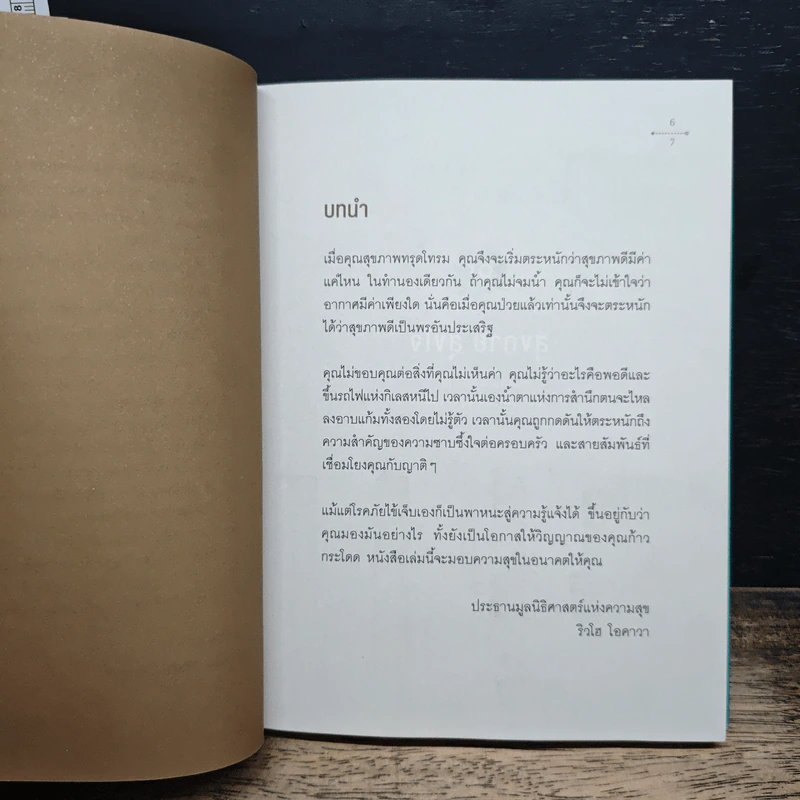 8
6
7
บทนำ
เมื่อคุณสุขภาพทรุดโทรม คุณจึงจะเริ่มตระหนักว่าสุขภาพดีมีค่า
แค่ไหน ในทำนองเดียวกัน ถ้าคุณไม่จมน้ำ คุณก็จะไม่เข้าใจว่า
อากาศมีค่าเพียงใด นั่นคือเมื่อคุณป่วยแล้วเท่านั้นจึงจะตระหนัก
ได้ว่าสุขภาพดีเป็นพรอันประเสริฐ
คุณไม่ขอบคุณต่อสิ่งที่คุณไม่เห็นค่า คุณไม่รู้ว่าอะไรคือพอดีและ
ขึ้นรถไฟแห่งกิเลสหนีไป เวลานั้นเองน้ำตาแห่งการสำนึกตนจะไหล
ลงอาบแก้มทั้งสองโดยไม่รู้ตัว เวลานั้นคุณถูกกดดันให้ตระหนักถึง
ความสำคัญของความซาบซึ้งใจต่อครอบครัว และสายสัมพันธ์ที่
เชื่อมโยงคุณกับญาติๆ
แม้แต่โรคภัยไข้เจ็บเองก็เป็นพาหนะสู่ความรู้แจ้งได้ ขึ้นอยู่กับว่า
คุณมองมันอย่างไร ทั้งยังเป็นโอกาสให้วิญญาณของคุณก้าว
กระโดด หนังสือเล่มนี้จะมอบความสุขในอนาคตให้คุณ
ประธานมูลนิธิศาสตร์แห่งความสุข
ริวโฮ โอคาวา